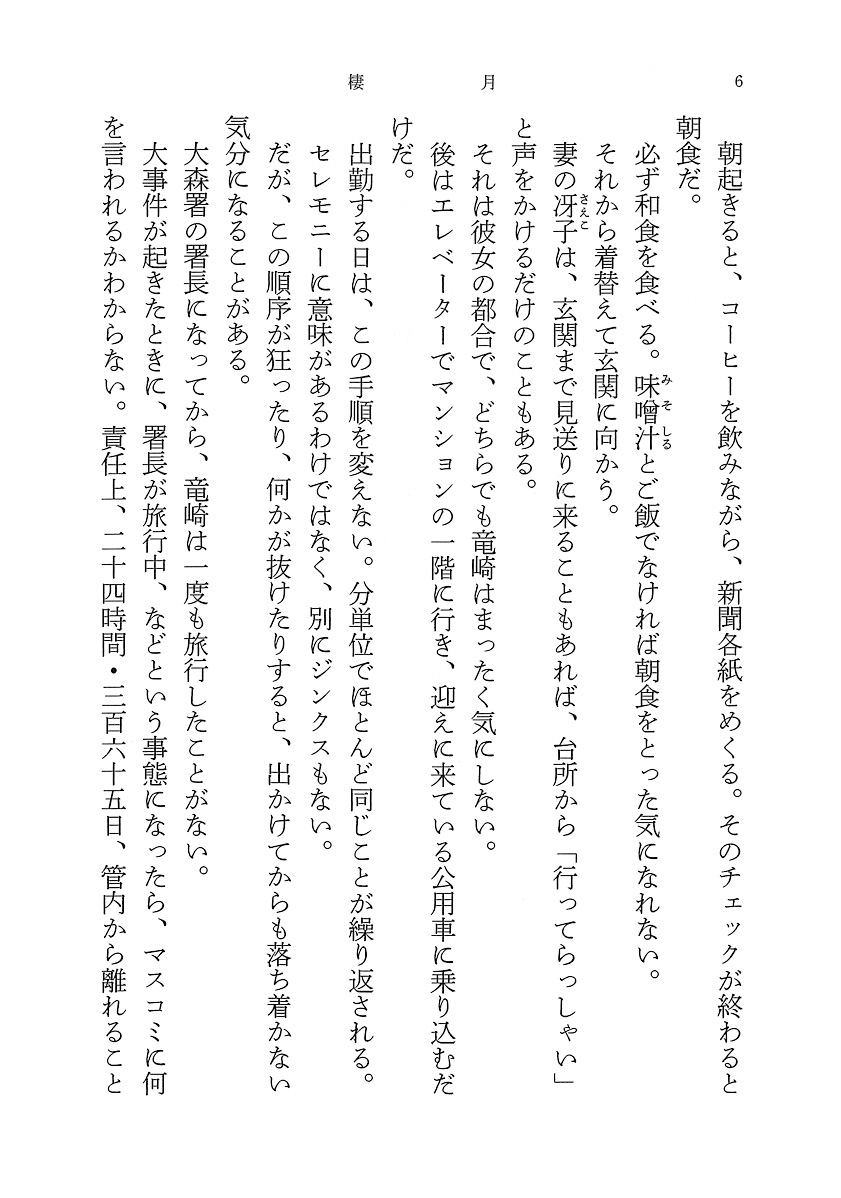 6
棲月
朝起きると、コーヒーを飲みながら、新聞各紙をめくる。そのチェックが終わると
朝食だ。
必ず和食を食べる。味噌汁とご飯でなければ朝食をとった気になれない。
みそしる
それから着替えて玄関に向かう。
妻の冴子は、玄関まで見送りに来ることもあれば、台所から「行ってらっしゃい」
さえこ
と声をかけるだけのこともある。
それは彼女の都合で、どちらでも竜崎はまったく気にしない。
後はエレベーターでマンションの一階に行き、迎えに来ている公用車に乗り込むだ
けだ。
出勤する日は、この手順を変えない。分単位でほとんど同じことが繰り返される。
セレモニーに意味があるわけではなく、別にジンクスもない。
だが、この順序が狂ったり、何かが抜けたりすると、出かけてからも落ち着かない
気分になることがある。
大森署の署長になってから、竜崎は一度も旅行したことがない。
大事件が起きたときに、署長が旅行中、などという事態になったら、マスコミに何
を言われるかわからない。責任上、二十四時間・三百六十五日、管内から離れること